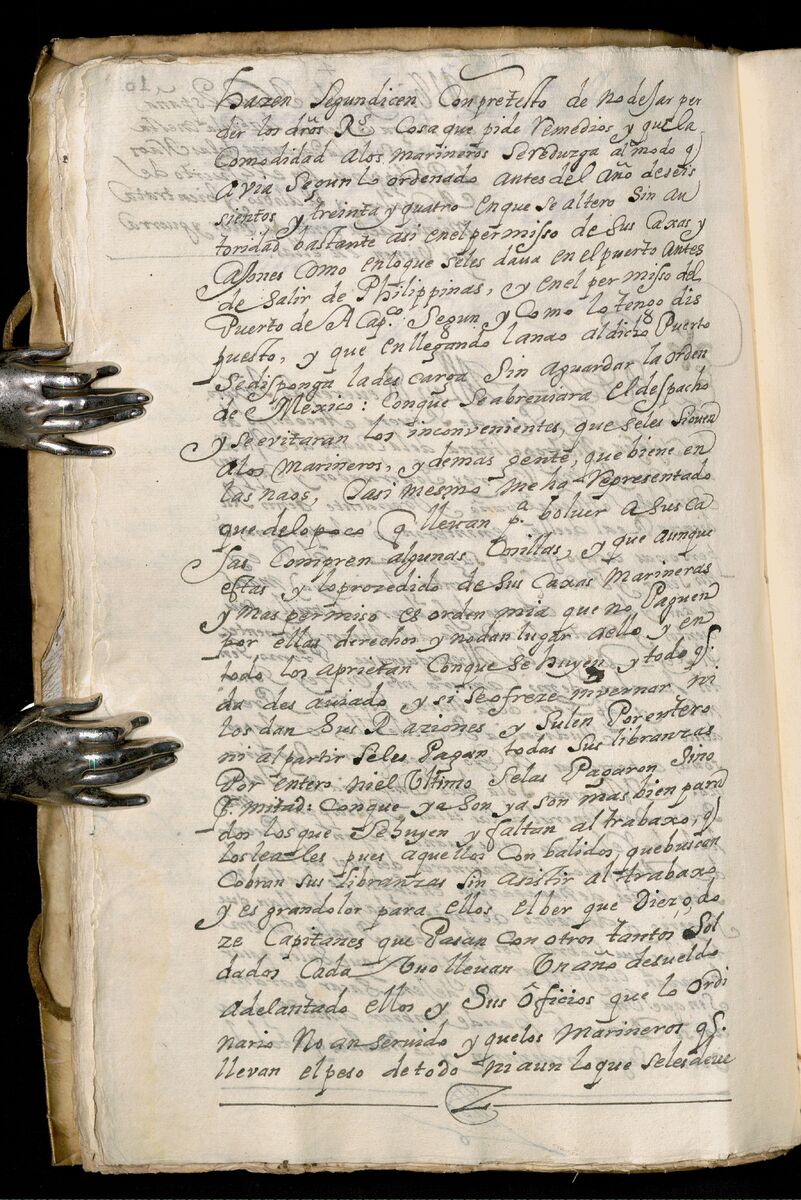 hazen segun dicen Con pretesto de no dejar per
der los drõs Rs. Cosa que pide remedios y que la
Comodidad a los marineros se reduzga al modo q
avia segun lo ordenado antes del Año de seis
sientos y treinta y quatro en que se altero sin au
toridad bastante asi en el permisso de sus caxas y
Casones Como en lo que seles dava en el puerto antes
de salir de Philippinas, y en el permisso del
Puerto de ACapco. Segun y Como lo tengo dis
puesto, y que en llegando la nao al dicho Puerto
se disponga la descarga sin aguardar la orden
de Mexico: Conque se abreviara el despacho
y se evitaran los inconvenientes, que seles siguen
a los marineros, y demas gente, que biene en
las naos, Iasi mesmo me ha representado
que de lo poco q llevan pa. bolver a sus ca
sas Compren algunas Cosillas, y que aunque
estas y lo prozedido de sus Caxas marineras
y mas permiso es orden mia que no Paguen
por ellas derechos y no dan lugar aello y en
todo los aprietan Conque se huyen y todo q.
da des auiado y si se ofreze invernar ni
los dan sus Raziones y suelen Por entero
ni al partir seles Pagan todas sus libranzas
Por entero ni el Ultimo selas Pagaron sino
mitad: Conque ya son ya son mas bien para
dos los que se huyen y faltan al trabaxo, q
los leales pues aquellos Con balidos, que buscan
Cobran sus libranzas sin asistir al trabaxo
y es gran dolor para ellos el ber que Diez, o, do
ze Capitanes que Pasan con otros tantos Sol
dados Cada Uno llevan Un año de sueldo
adelantado ellos y sus Oficios que lo ordi
nario No an servido y que los marineros q.
llevan el peso de todo ni aun lo que seles deve